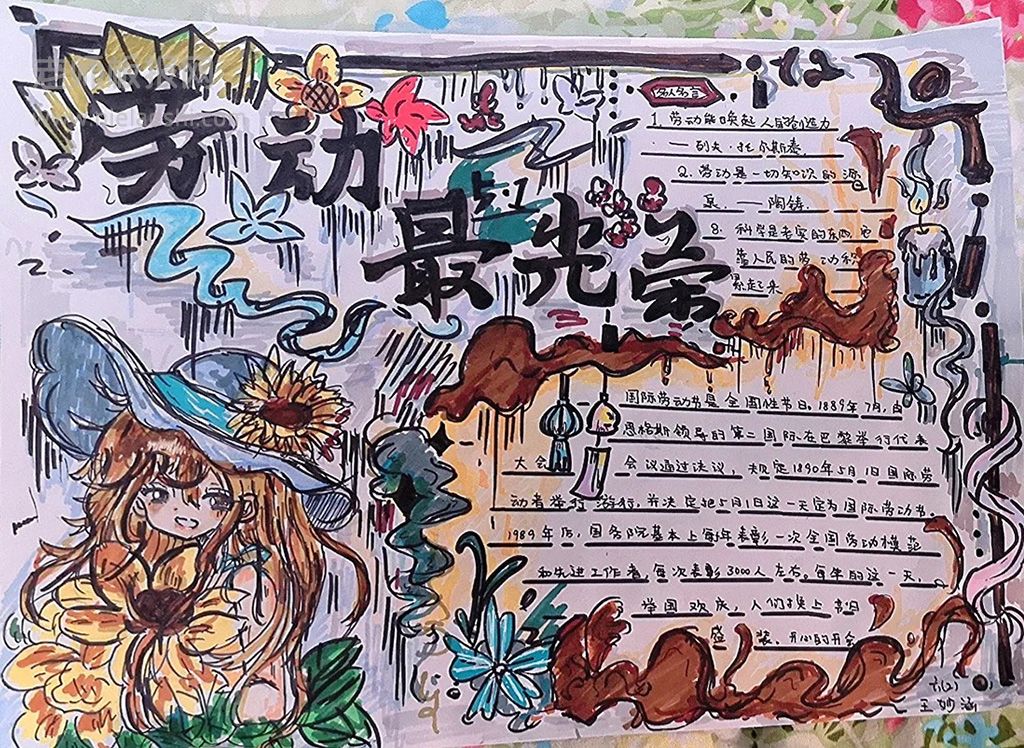 劳动
最光荣
5.1
名人名言
1. 劳动能唤起人的创造力
—列夫·托尔斯泰.
2. 劳动是一切知识的源
泉. —陶铸.
8. 科学是老实的东西,它
靠人民的劳动积
累起来
国际劳动节是全国性节日。1889年7月,由
恩格斯领导的第二国际在巴黎举行代表
大会 会议通过决议,规定1890年5月1日国际劳
动者举行游行,并决定把5月1日这一天定为国际劳动节。
1989年后,国务院基本上每5年表彰一次全国劳动模范
和先进工作者,每次表彰3000人左右。每年的这一天,
举国欢庆,人们换上节日
盛装、开心的开会
六(2)
王妙涵